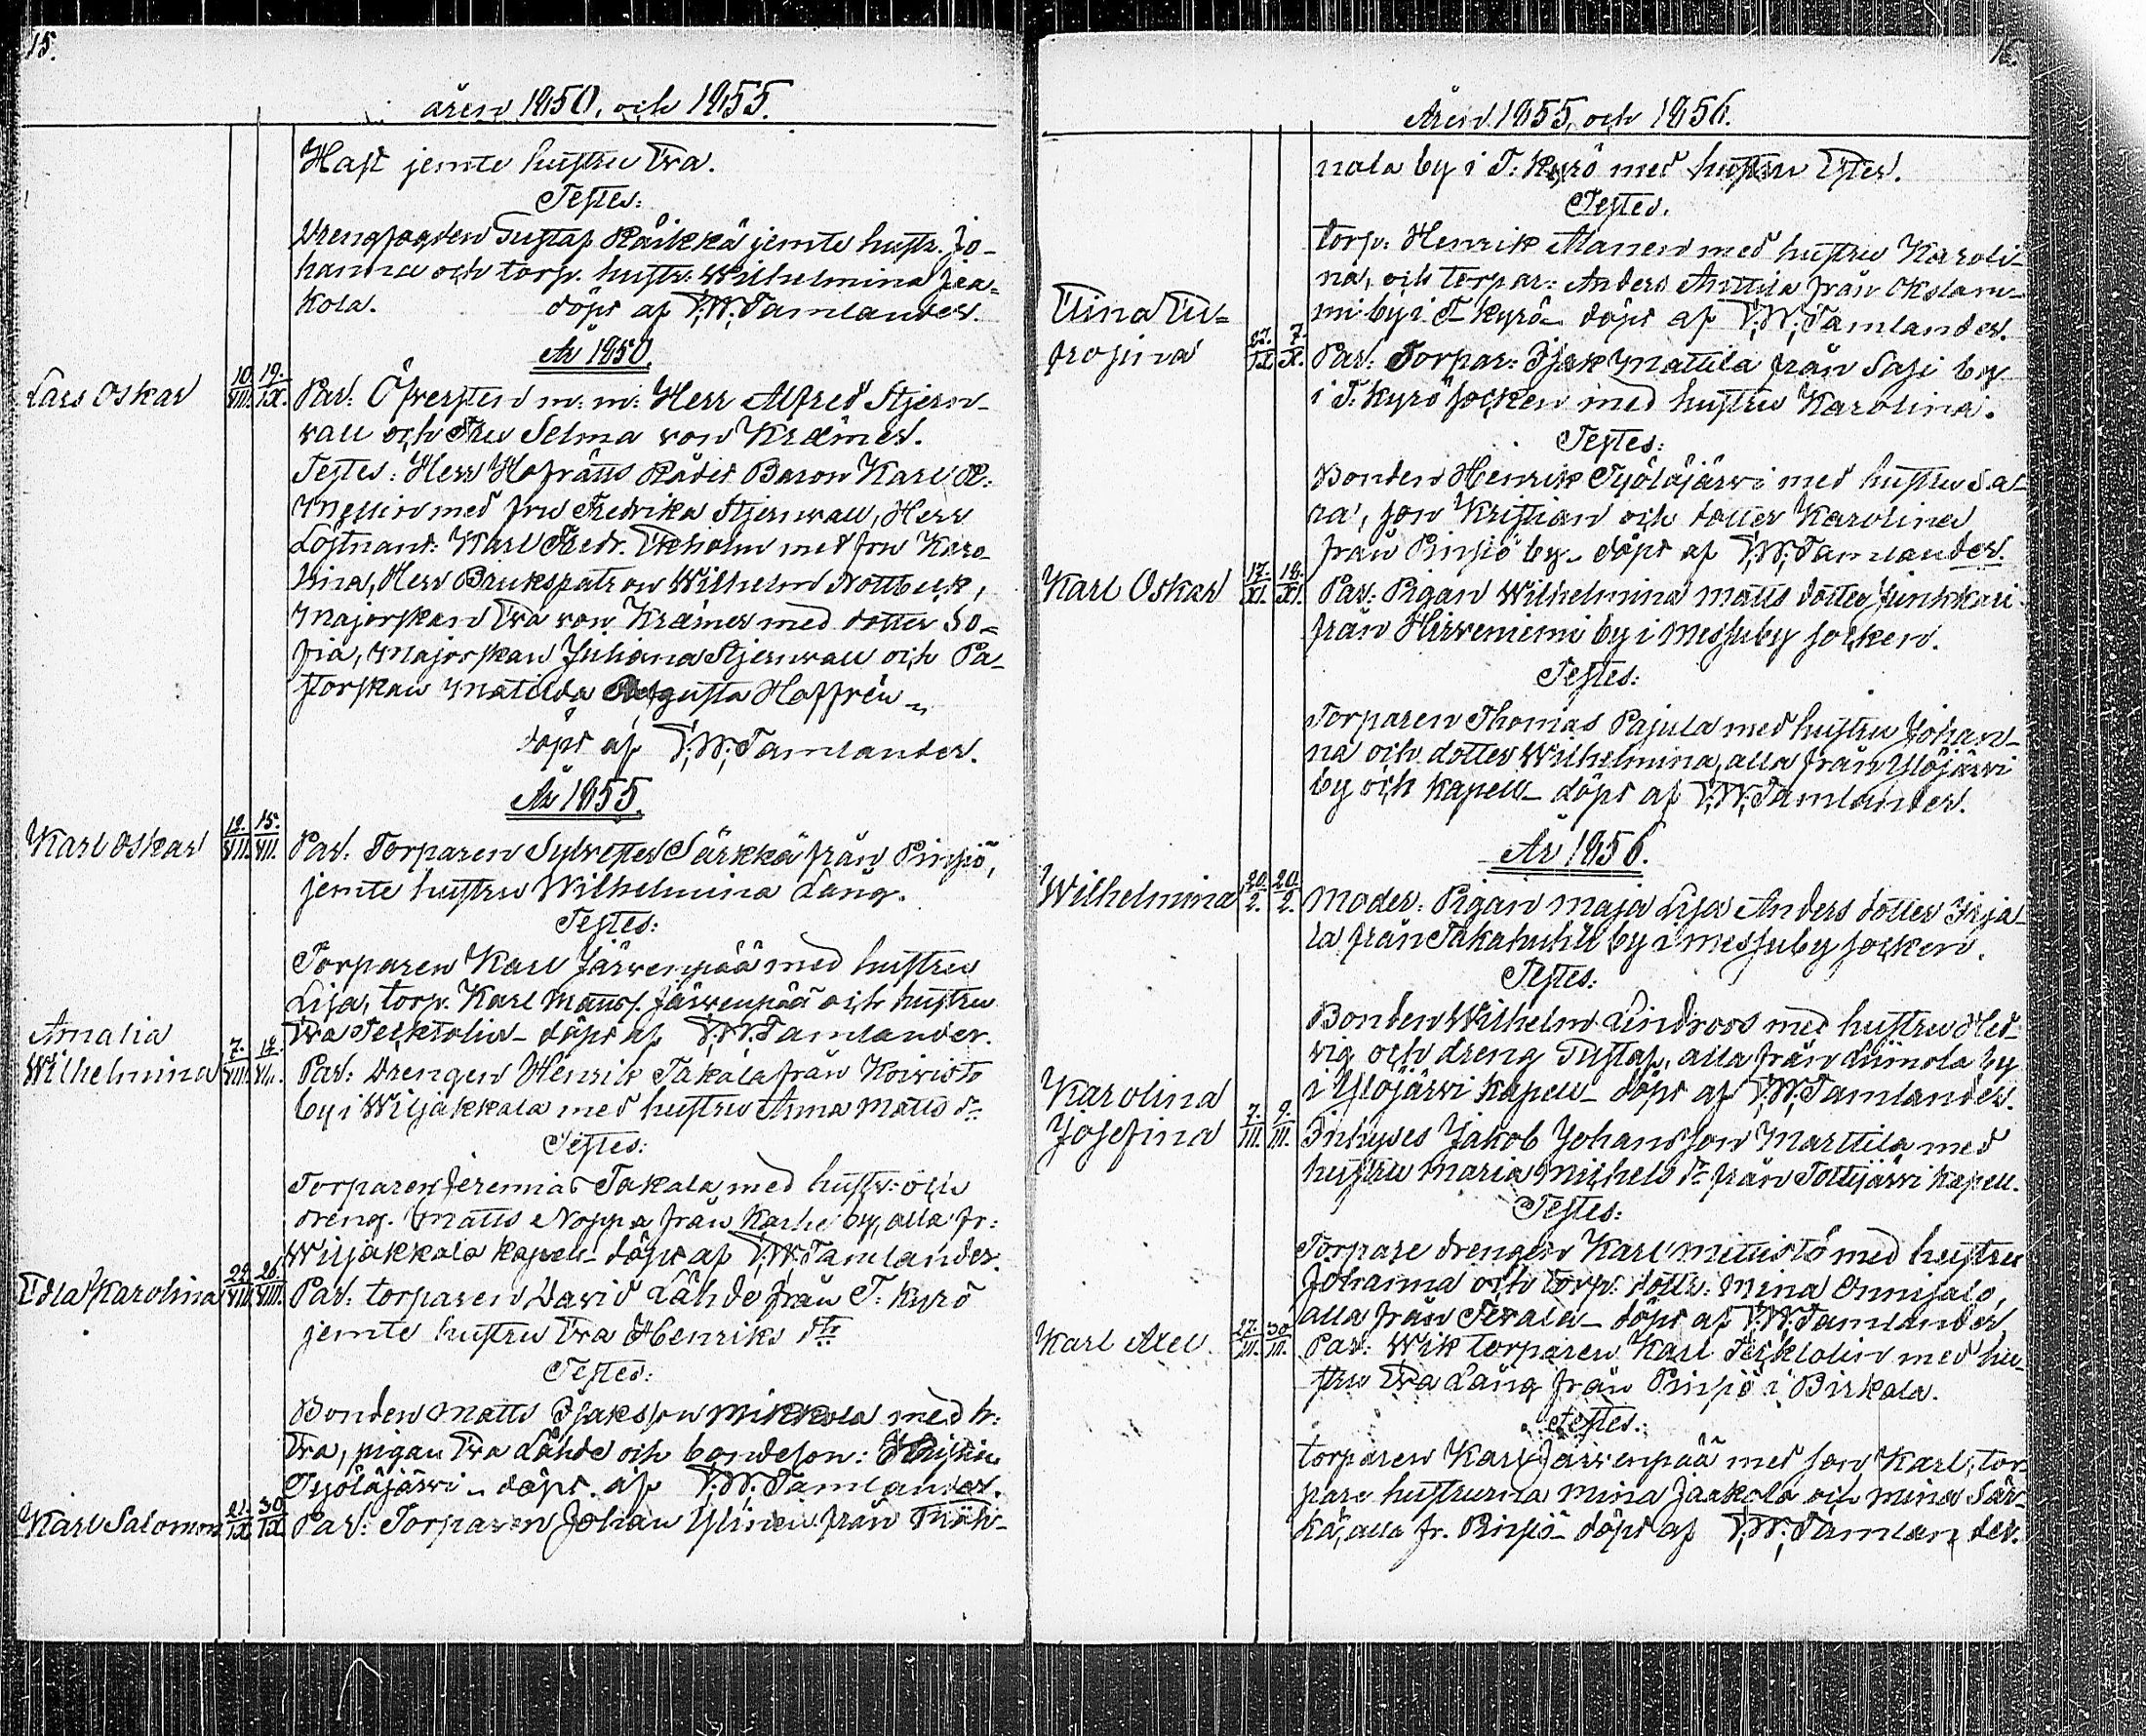 15.
åren 1850, och 1855.
Haft jemte hustru Eva.
Testes:
Drengfogden Gustaf Räikkä jemte hustr. Jo-
hanna och torp. hustr: Wilhelmina Jaa-
kola. döpt af F. W. Tamlander.
År 1850.
Lars Oskar 10./VIII. 19./IX. Par: Öfversten m: m: Herr Alfred Stjern-
vall och Fru Selma von Kræmer.
Testes: Herr Hofrätts Rådet Baron Karl R:
med fru Fredrika Stjernvall, Herr
Löjtnant: Karl Fredr. Ekholm med fru Karo-
lina, Herr Brukspatron Wilhelm Nottbeck,
Majorskan Eva von Kræmer med dotter So-
fia, Majorskan Juliana Stjernvall och Pa-
storskan Matilda Augusta Hoffrén
döpt af F. W. Tamlander.
År 1855.
Karl Oskar 12./VII. 15./VII. Par: Torparen Sylvester Särkkä från Pinsiö,
jemte hustru Wilhelmina Lång.
Testes:
Torparen Karl Järvenpää med hustru
Lisa, torp. Karl Matts s. Järvenpää och hustru
Eva Tecktolin - döpt af F. W. Tamlander.
Amalia
Wilhelmina 7./VII. 12./VII. Par: Drengen Henrik Takala från Koivisto
by i Wiljakkala med hustru Anna Matts dr
Testes:
Torparen Jeremias Takala med hustr: och
dreng. Matts Noppa från Karhe by, alla fr:
Wiljakkala kapell - döpt af F. W. Tamlander.
Edla Karolina 22./VIII. 26./VIII. Par: torparen David Lähde från T: Kyrö
jemte hustru Eva Henriks dtr
Testes:
Bonden Matts Isaksson Mikkola med h:
Eva, pigan Eva Lähde och bondeson:
Työläjärvi - döpt af F. W. Tamlander.
Karl Salomon 21./IX. 30./IX. Par: Torparen Johan Ylinen från

15.
Åren 1855, och 1856.
nala by i T: Kyrö med hustru Ester.
Testes.
torp: Henrik Alanen med hustru Karoli-
na, och torpar: Anders Anttila från Okslam-
mi by i T- Kyrö - döpt af F. W. Tamlander.
Eina Eu-
frosina 22./IX. 7./X. Par: Torpar: Isak Mattila från Sasi by
i T. Kyrö socken med hustru Karolina.
Testes:
Bonden Henrik Työläjärvi med hustru Sa-
ra, son Kristian och dotter Karolina
från Pinsiö by - döpt af F. W. Tamlander.
Karl Oskar 17./XI. 18./XI. Par: Pigan Wilhelmina Matts dotter Junkkari
från Hirveniemi by i Messuby socken.
Testes:
Torparen Thomas Pajula med hustru Johan-
na och dotter Wilhelmina, alla från Ylöjärvi
by och kapell - döpt af F. W. Tamlander.
År 1856.
Wilhelmina 20./2. 20./2. Moder: Pigan Maja Lisa Anders dotter Irja-
la från Takahuhti by i Messuby socken.
Testes:
Bonden Wilhelm Lindroos med hustru Hed-
vig och dreng Gustaf, alla från Liimola by
i Ylöjärvi kapell - döpt af F. W. Tamlander.
Karolina
Josefina 7./III. 9./III. Inhyses Jakob Johansson Marttila med
hustru Maria Michels dr från Tottijärvi kapell.
Testes:
Torpare drengen Karl Mettistö med hustru
Johanna och torp: dottr: Mina Onnisalo,
alla från Tevala - döpt af F. W. Tamlander
Karl Axel 27./III. 30./III. Par: Wik torparen Karl Tecktolin med hu-
stru Eva Lång från Pinsiö i Birkala.
Testes:
torparen Karl Järvenpää med son Karl, tor-
pare hustrurna Mina Jaakola och Mina Sär-
kä, alla fr. Pinsiö - döpt af F. W. Tamlander.